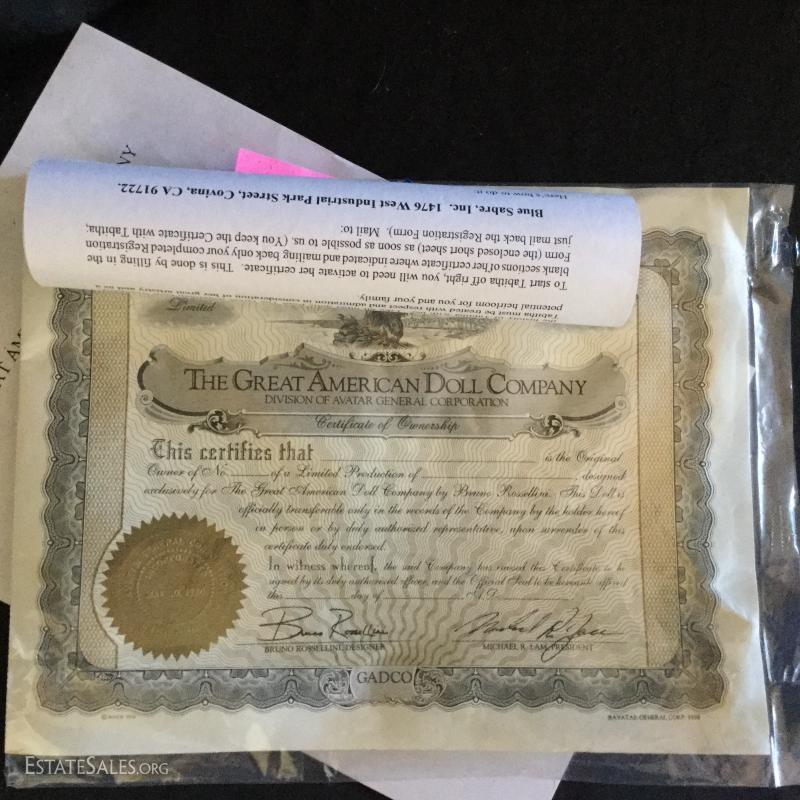 Here's how to do it:
Blue Sabre, Inc. 1476 West Industrial Park Street, Covina, CA 91722.
just mail the back Registration Form). Mail to:
Form (the enclosed short sheet) as soon as possible to us. (You keep the Certificate with Tabitha;
blank sections of her certificate where indicated and mailing back only your completed Registration
To start Tabitha off right, you will need to activate her certificate. This is done by filling in the
potential heirloom for you and your family.
Tabitha must be treated with respect and admiration in consideration of her
Limited
THE GREAT AMERICAN DOLL COMPANY
DIVISION OF AVATAR GENERAL CORPORATION
Certificate of Ownership
This certifies that is the Original
Owner of No. of a Limited Production of , designed
exclusively for The Great American Doll Company by Bruno Rossellini. This Doll is
officially transferable only in the records of the Company by the holder hereof
in person or by duly authorized representative, upon surrender of this
certificate duly endorsed.
In witness whereof, the said Company has caused this Certificate to be
signed by its duly authorized officer, and the Official Seal to be hereunto affixed
this day of , A.D.
Bruno Rossellini
BRUNO ROSSELLINI, DESIGNER MICHAEL R. LAM, PRESIDENT
GADCO
ESTATESALES.ORG